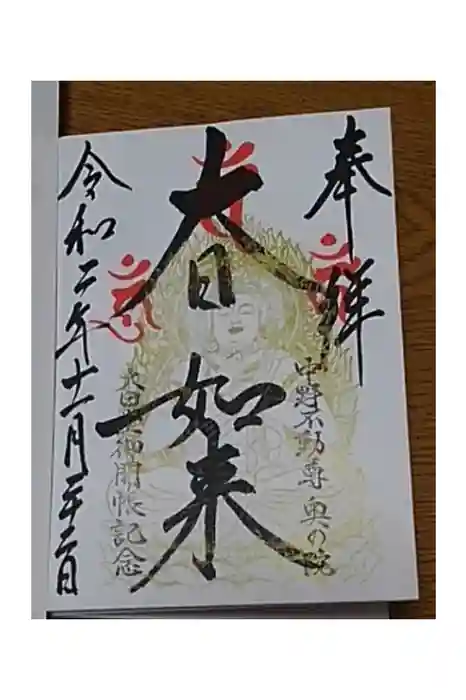 奉拝
中野不動尊 奥の院
大日如来
大日堂御開帳記念
令和二年十一月二十二日